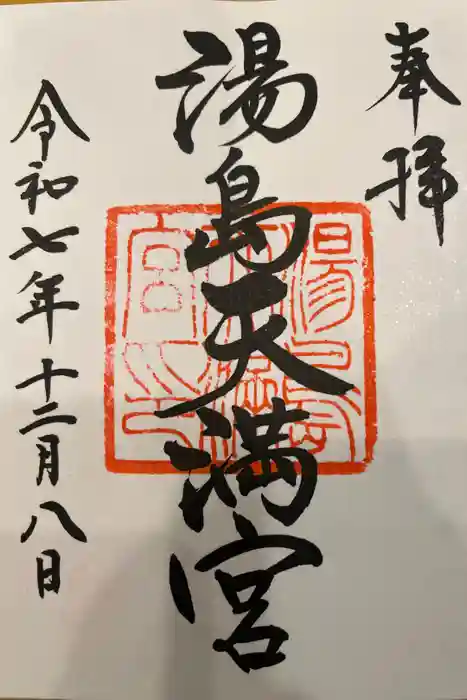 奉拝
湯島天満宮
令和七年十二月八日